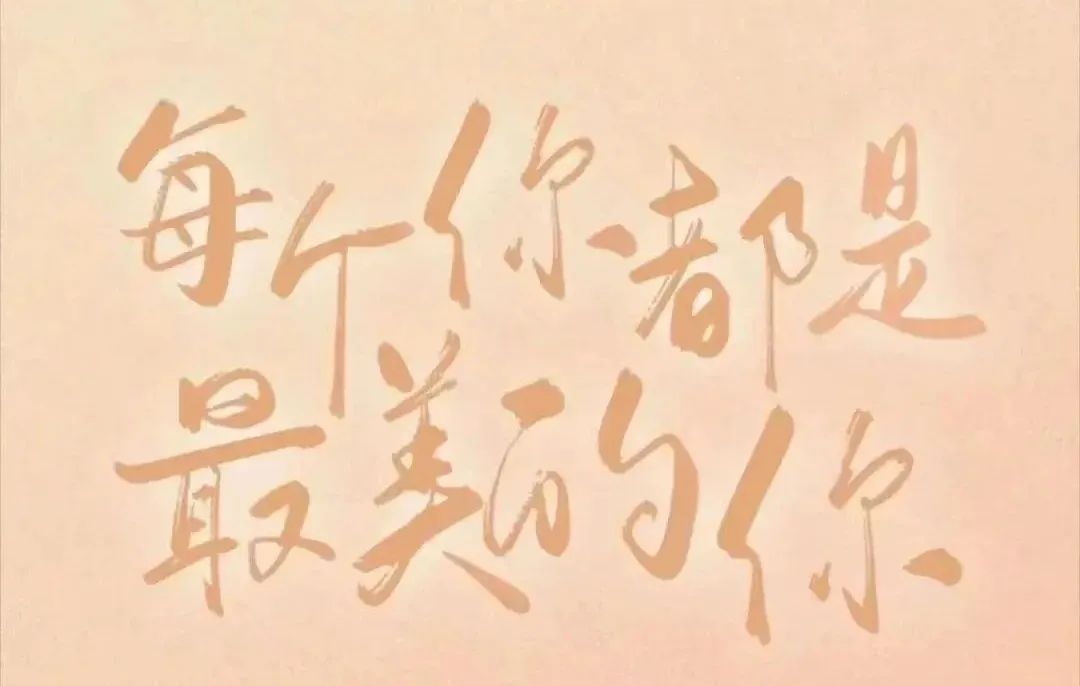 每个你都是
最美的你